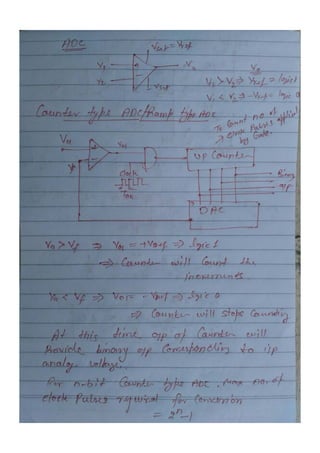 ADC
V1 > V2 ⇒ Vref = logic 1
V1 < V2 ⇒ -Vref = logic 0
Counter type ADC/Ramp type ADC
To Count no. of
Clock Pulses applied
by Gate.
clock
UP Counter
Binary
O/P
DAC
⇒ logic 1
⇒ Counter will Count the
⇒ logic 0
⇒ Counter will stops Counting
At this time, O/P of Counter will
Provide binary O/P Corresponding to i/p
analog voltage.
For n-bit Counter type ADC, Max no. of
clock Pulses required for Conversion
= 2^n-1